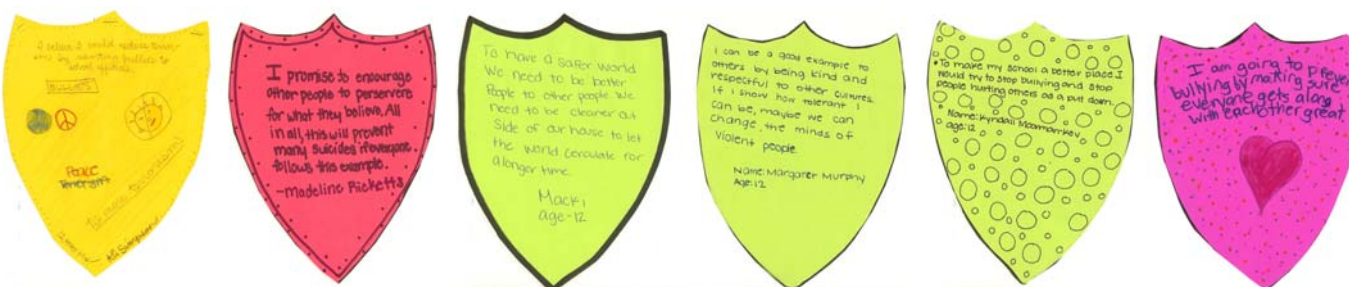 I believe I could reduce
by
BULLIES
PEACE
Terrorism
I promise to encourage
other people to perservere
for what they believe. All
in all, this will prevent
many suicides if everyone
follows this example.
-Madeline Ricketts
To have a safer world
We need to be better
People to other people. We
need to be cleaner out
Side of our house to let
the world
a longer time.
Macki
age-12
I can be a good example to
others by being kind and
respectful to other cultures.
If I show how tolerant I
can be, maybe we can
change the minds of
Violent people.
Name: Margaret Murphy
Age: 12
• To make my school a better place I
Would try to stop bullying and stop
people hurting others as a put down.
Name: Kyndall
age: 12
I am going to prevent
bullying by making sure
everyone gets along
with each other great